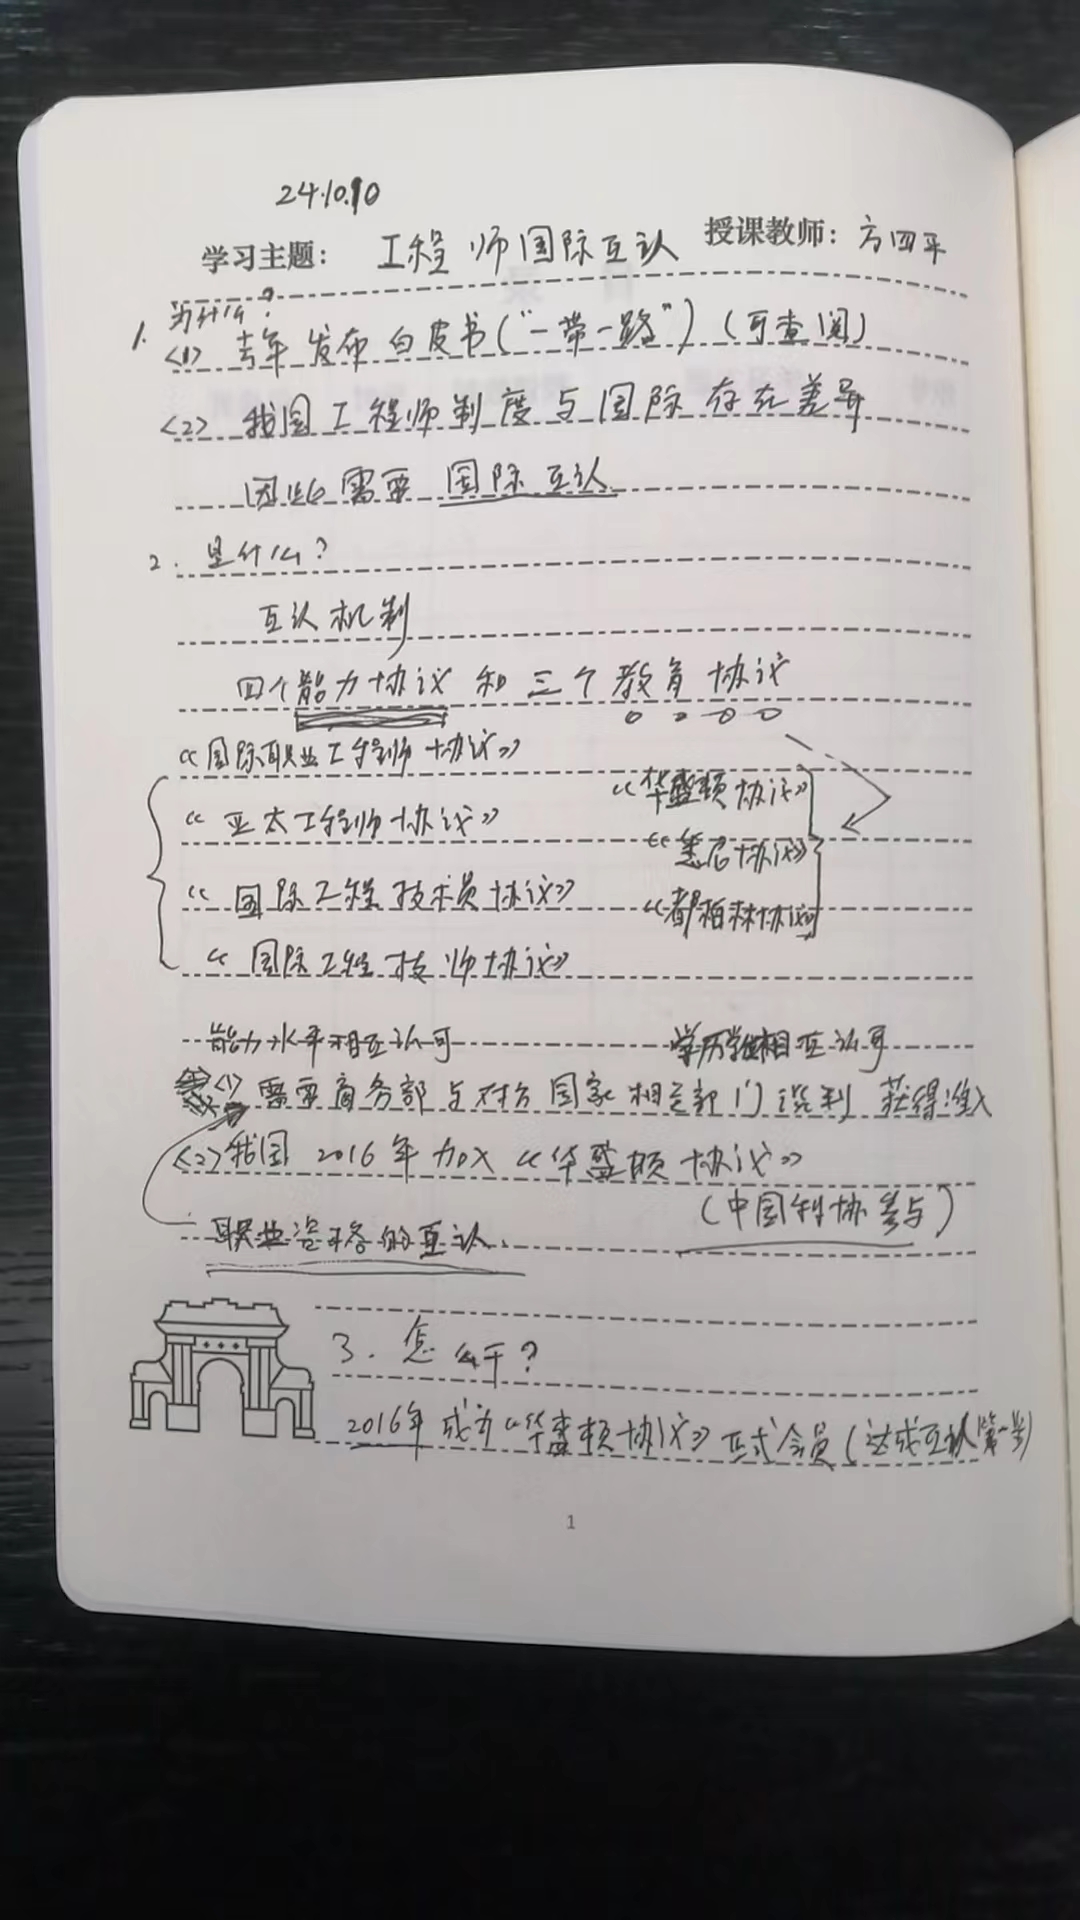 24.10.10
学习主题: 工程师国际互认 授课教师: 方四平
1. 为什么?
<1> 去年发布白皮书("一带一路")(可查阅)
<2> 我国工程师制度与国际存在差异
因此需要 国际互认
2. 是什么?
互认机制
四个能力协议 和三个教育协议
《国际职业工程师协议》
《华盛顿协议》
《亚太工程师协议》
《悉尼协议》
《国际工程技术员协议》
《都柏林协议》
《国际工程技师协议》
能力水平相互认可 学历学位相互认可
<1> 需要商务部与对方国家相关部门谈判 获得准入
<2> 我国 2016年加入《华盛顿协议》
(中国科协参与)
职业资格的互认.
3. 怎么干?
2016年成为《华盛顿协议》正式会员(达成互认第一步)
1